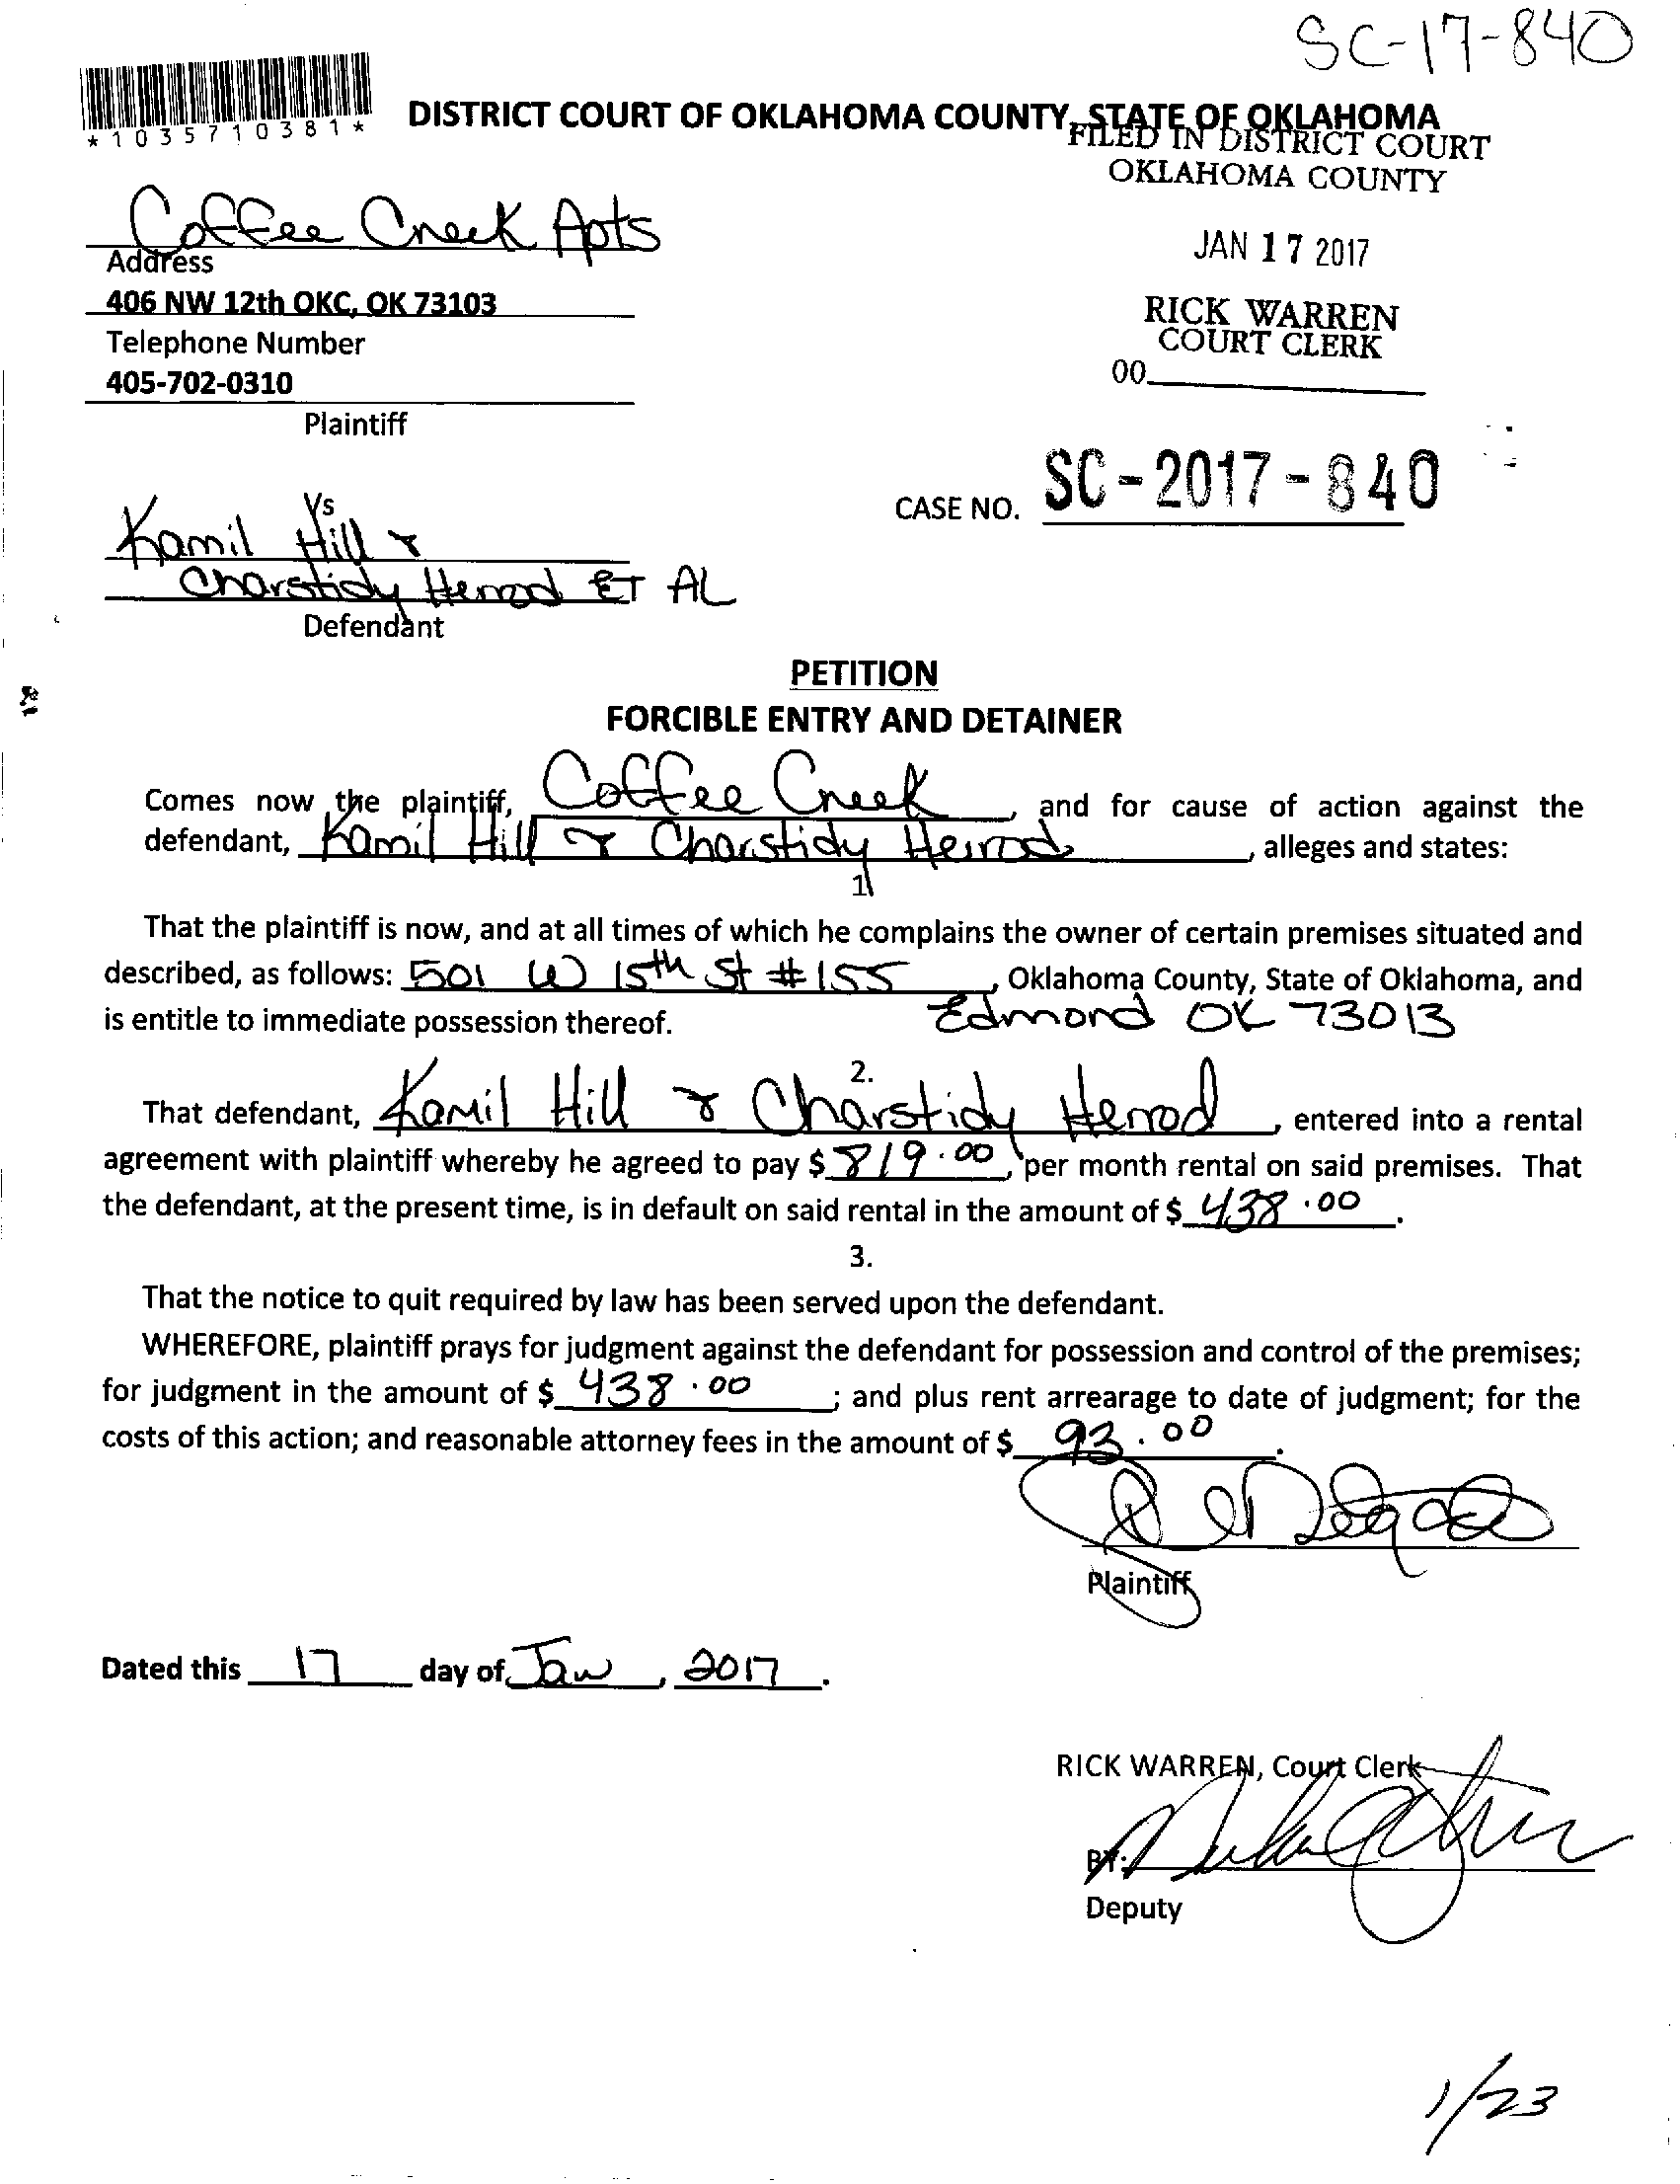 SC-17-840
*1035710381*
DISTRICT COURT OF OKLAHOMA COUNTY, STATE OF OKLAHOMA
FILED IN DISTRICT COURT
OKLAHOMA COUNTY
Coffee Creek Apts
Address
406 NW 12th OKC, OK 73103
Telephone Number
405-702-0310
Plaintiff
JAN 17 2017
RICK WARREN
COURT CLERK
00
CASE NO. SC-2017-840
Vs
Kamil Hill &
Charstidy Herrod ET AL
Defendant
PETITION
FORCIBLE ENTRY AND DETAINER
Comes now the plaintiff, Coffee Creek, and for cause of action against the
defendant, Kamil Hill & Charstidy Herrod, alleges and states:
1
That the plaintiff is now, and at all times of which he complains the owner of certain premises situated and
described, as follows: 501 W 15th St #155, Oklahoma County, State of Oklahoma, and
is entitle to immediate possession thereof. Edmond OK 73013
2.
That defendant, Kamil Hill & Charstidy Herrod, entered into a rental
agreement with plaintiff whereby he agreed to pay $ 819.00, per month rental on said premises. That
the defendant, at the present time, is in default on said rental in the amount of $ 438.00.
3.
That the notice to quit required by law has been served upon the defendant.
WHEREFORE, plaintiff prays for judgment against the defendant for possession and control of the premises;
for judgment in the amount of $ 438.00; and plus rent arrearage to date of judgment; for the
costs of this action; and reasonable attorney fees in the amount of $ 93.00.
Plaintiff
Dated this 17 day of Jan, 2017.
RICK WARREN, Court Clerk
BY:
Deputy
1/23